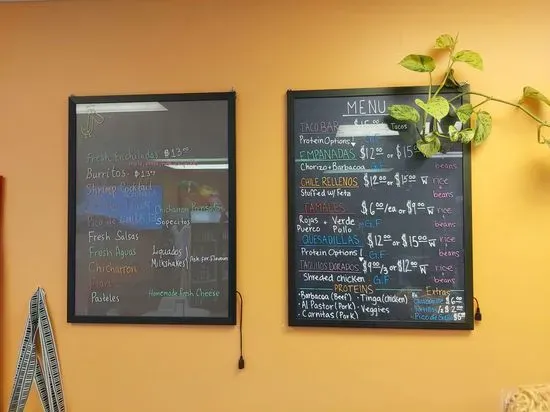 Fresh Enchiladas $13.00
Burritos - $13
Shrimp Cocktail
Pico de
Chicharron Prensado
Sopecitos
Fresh Salsas
Fresh Aguas
Liquados
Milkshakes
Ask for flavors
Chicharron
Flan
Pasteles
Homemade Fresh Cheese
MENU
TACO BAR
Tacos
Protein Options G.F
EMPANADAS $12.00 or $15
Chorizo + Barbacoa
rice + beans
CHILE RELLENOS $12.00 or $15.00 w rice + beans
Stuffed w/ Feta
TAMALES $6.00/ea or $9.00 w rice + beans
Rojas + Verde G.F
Puerco Pollo
QUESADILLAS $12.00 or $15.00 w rice + beans
Protein Options G.F
TAQUITOS DORADOS $9.00/3 or $12.00 w rice + beans
Shredded chicken G.F
PROTEINS
Extras
- Barbacoa (Beef) - Tinga (chicken)
- Al Pastor (Pork) - Veggies
- Carnitas (Pork)